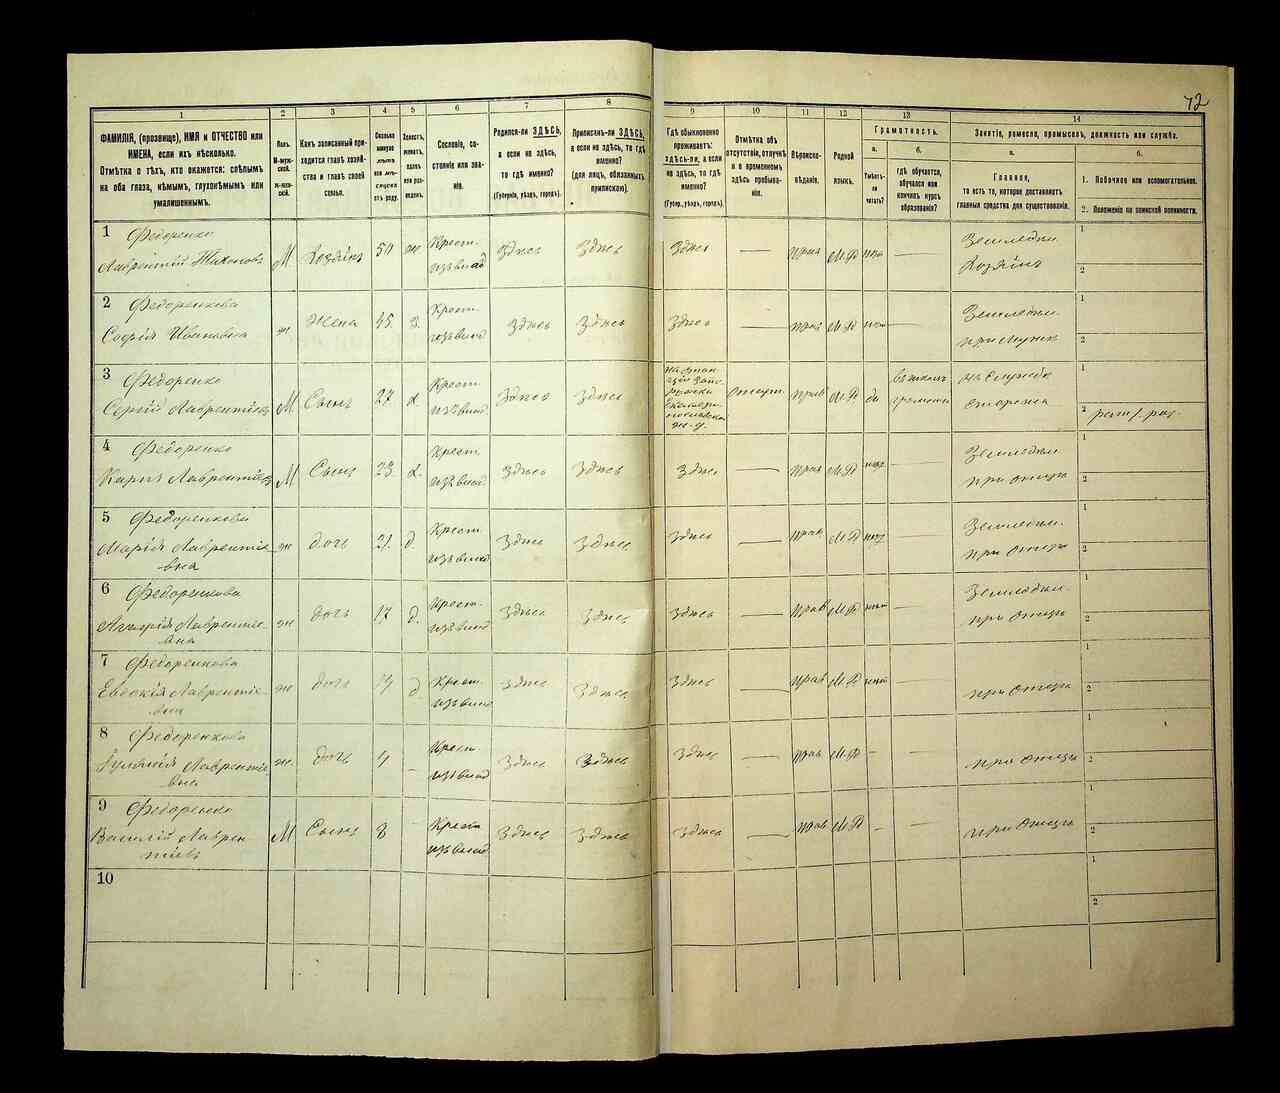 72
1
2
3
4
5
6
7
8
9
10
11
12
13
14
ФАМИЛІЯ, (прозвище), ИМЯ и ОТЧЕСТВО или
ИМЕНА, если ихъ нѣсколько.
Отмѣтка о тѣхъ, кто окажется: слѣпымъ
на оба глаза, нѣмымъ, глухонѣмымъ или
умалишеннымъ.
Полъ.
М-мужской.
Ж-женскій.
Какъ записанный при-
ходится главѣ хозяй-
ства и главѣ своей
семьи.
Сколько
минуло
лѣтъ
или мѣ-
сяцевъ
отъ роду.
Холостъ,
женатъ,
вдовъ
или раз-
веденъ.
Сословіе, со-
стояніе или зва-
ніе.
Родился-ли ЗДѢСЬ,
а если не здѣсь,
то гдѣ именно?
(Губернія, уѣздъ, городъ).
Приписанъ-ли ЗДѢСЬ,
а если не здѣсь, то гдѣ
именно?
(для лицъ, обязанныхъ
припискою).
Гдѣ обыкновенно
проживаетъ:
здѣсь-ли, а если
не здѣсь, то гдѣ
именно?
(Губер., уѣздъ, городъ).
Отмѣтка объ
отсутствіи, отлучкѣ
и о временномъ
здѣсь пребыва-
ніи.
Вѣроиспо-
вѣданіе.
Родной
языкъ.
Грамотность.
а.
Умѣетъ-
ли
читать?
б.
гдѣ обучается,
обучался или
кончилъ курсъ
образованія?
Занятіе, ремесло, промыселъ, должность или служба.
а.
Главное,
то есть то, которое доставляетъ
главныя средства для существованія.
б.
1. Побочное или вспомогательное.
2. Положеніе по воинской повинности.
1
Федоренко
Лаврентій Тихоновъ
М
Хозяинъ
50
ж.
Крест.
изъ влад
Здѣсь
Здѣсь
Здѣсь
—
прав
М.Р
нѣт
—
Земледѣл.
Хозяинъ
1
2
2
Федоренкова
Софія Ивановна
ж
Жена
45.
з.
Крест.
изъ влад
Здѣсь
Здѣсь
Здѣсь
—
прав
М.Р
нѣт
—
Земледѣл.
при мужѣ
1
2
3
Федоренко
Сергій Лаврентіевъ
М
Сынъ
27
х.
Крест.
изъ влад
Здѣсь
Здѣсь
отсут.
прав
М.Р
да
въ школ
грамоты
на службѣ
сторожа
1
2
4
Федоренко
Карпъ Лаврентіевъ
М
Сынъ
23
х.
Крест.
изъ влад
Здѣсь
Здѣсь
Здѣсь
—
прав
М.Р
нѣт
—
Земледѣл.
при отцѣ
1
2
5
Федоренкова
Марія Лаврентіе
вна
ж
дочь
21.
д.
Крест.
изъ влад
Здѣсь
Здѣсь
Здѣсь
—
прав
М.Р
нѣт
—
Земледѣл.
при отцѣ
1
2
6
Федоренкова
Лаврентіе
вна
ж
дочь
17
д.
Крест.
изъ влад
Здѣсь
Здѣсь
Здѣсь
—
прав
М.Р
нѣт
—
Земледѣл.
при отцѣ
1
2
7
Федоренкова
Евдокія Лаврентіе
вна
ж
дочь
д
Крест.
изъ влад
Здѣсь
Здѣсь
Здѣсь
—
прав
М.Р
нѣт
—
при отцѣ
1
2
8
Федоренкова
Лаврентіе
вна
ж.
дочь
—
Крест.
изъ влад
Здѣсь
Здѣсь
Здѣсь
—
прав
М.Р
—
—
при отцѣ
1
2
9
Федоренко
Василій Лаврен
тіевъ
М
Сынъ
8
—
Крест
изъ влад
Здѣсь
Здѣсь
Здѣсь
—
прав
М.Р
—
—
при отцѣ
1
2
10
1
2